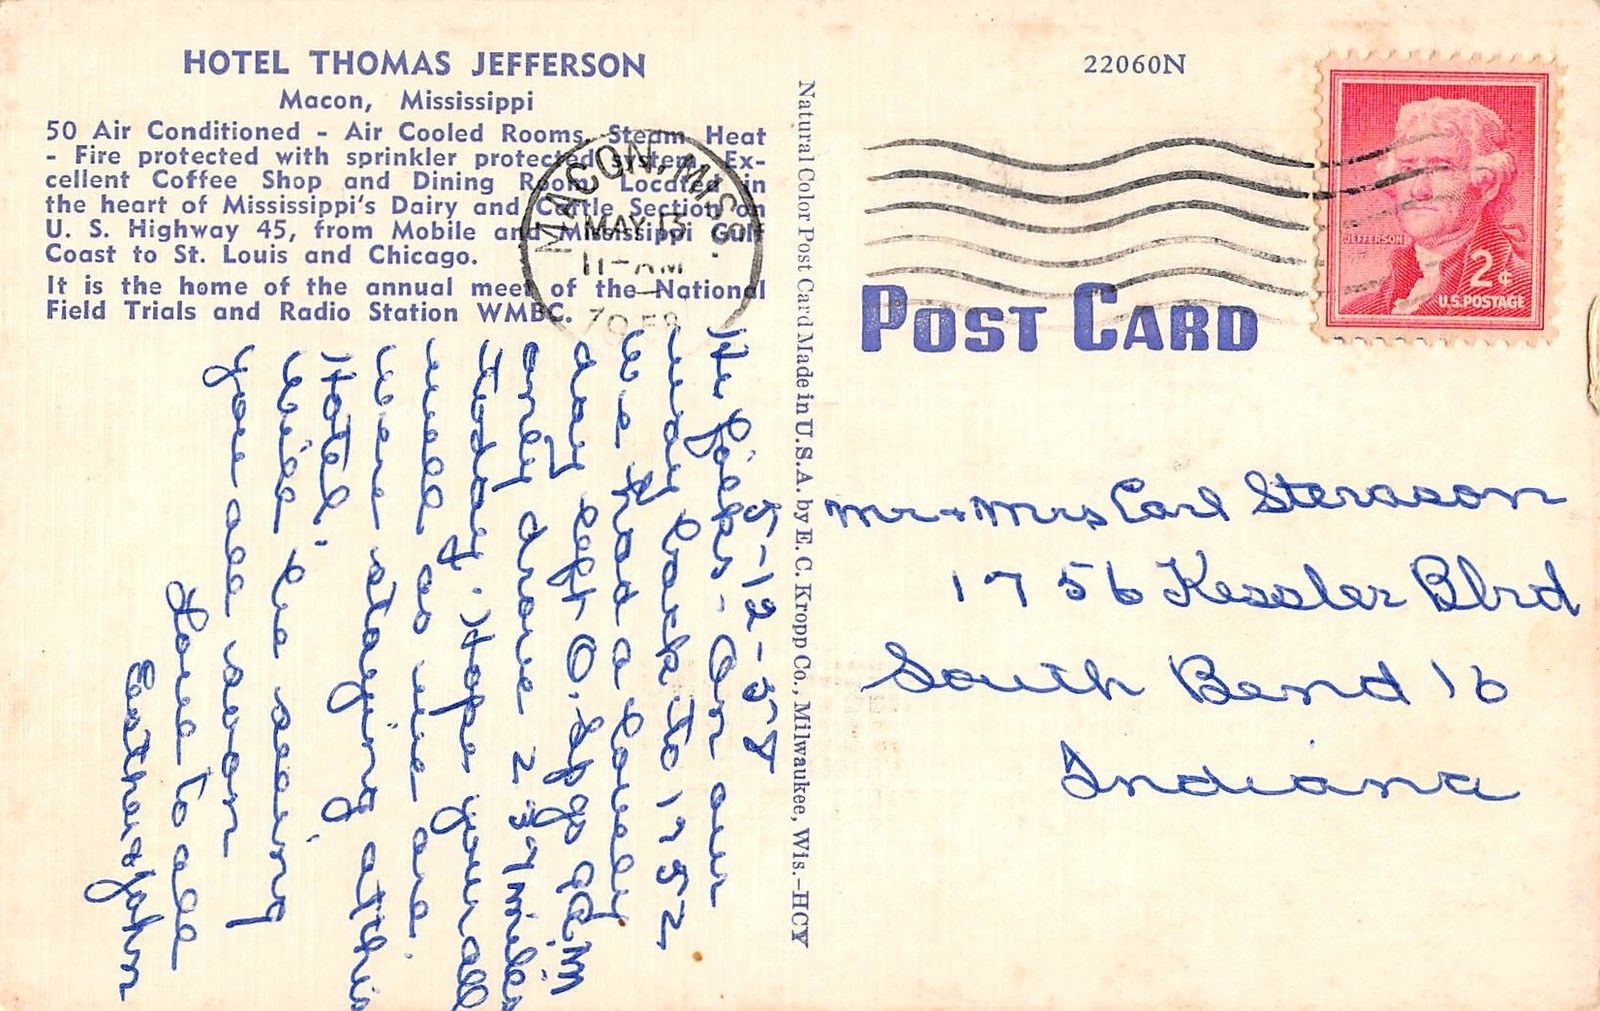 HOTEL THOMAS JEFFERSON
Macon, Mississippi
50 Air Conditioned - Air Cooled Rooms. Steam Heat
- Fire protected with sprinkler protected system. Ex-
cellent Coffee Shop and Dining Room. Located in
the heart of Mississippi's Dairy and Cattle Section on
U. S. Highway 45, from Mobile and Mississippi Gulf
Coast to St. Louis and Chicago.
It is the home of the annual meet of the National
Field Trials and Radio Station WMBC.
MACON, MISS.
MAY 13
11-AM
5-12-5
Hi Folks - On our
way back to 1752
We had a lovely
day left O. Spgs 9 am
only drove 239 miles
today. Hope you all
well as we are.
were staying at this
Hotel.
Will be seeing
you all soon
Love to all
Esther & John
Natural Color Post Card Made in U.S.A. by E. C. Kropp Co., Milwaukee, Wis.-HCY
22060N
JEFFERSON
2¢
U.S. POSTAGE
POST CARD
Mr + Mrs Carl
1756 Kessler Blvd
South Bend 16
Indiana